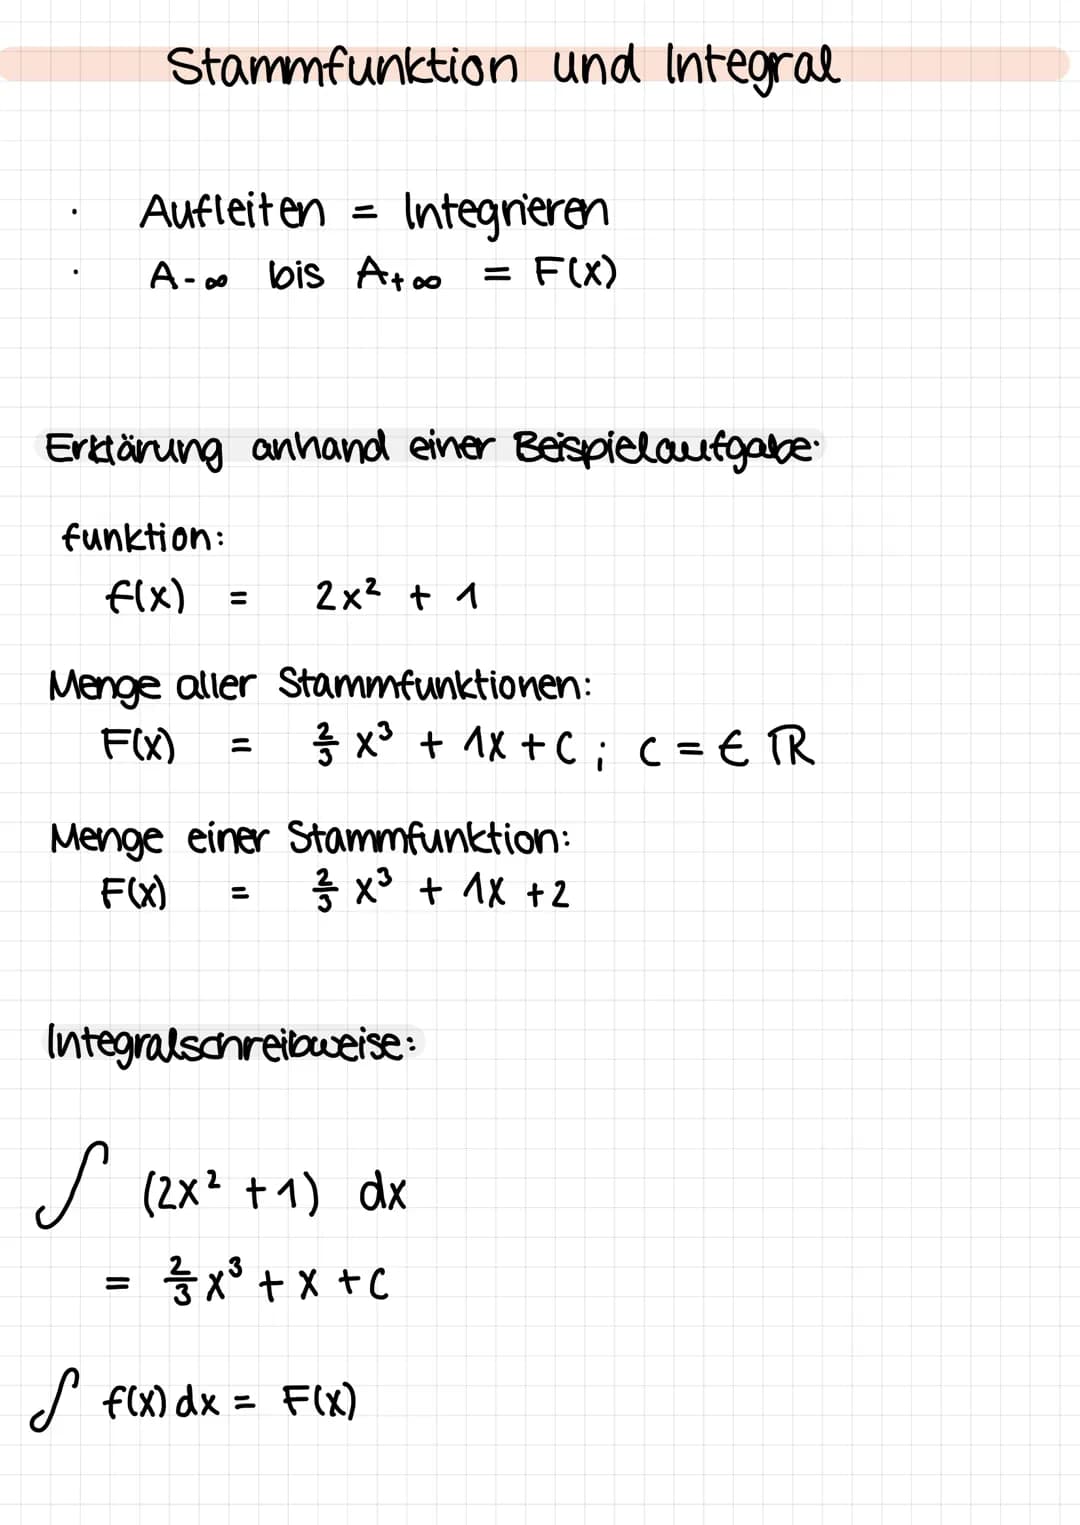 Stammfunktion und Integral
· Aufleiten = Integrieren
· A-∞ bis A+∞ = F(x)
Erklärung anhand einer Beispielaufgabe:
funktion:
f(x) = 2x² + 1
Menge aller Stammfunktionen:
F(x) = 2/3 x³ + 1x + C ; C = ∈ ℝ
Menge einer Stammfunktion:
F(x) = 2/3 x³ + 1x + 2
Integralschreibweise:
∫ (2x² + 1) dx
= 2/3 x³ + x + C
∫ f(x) dx = F(x)